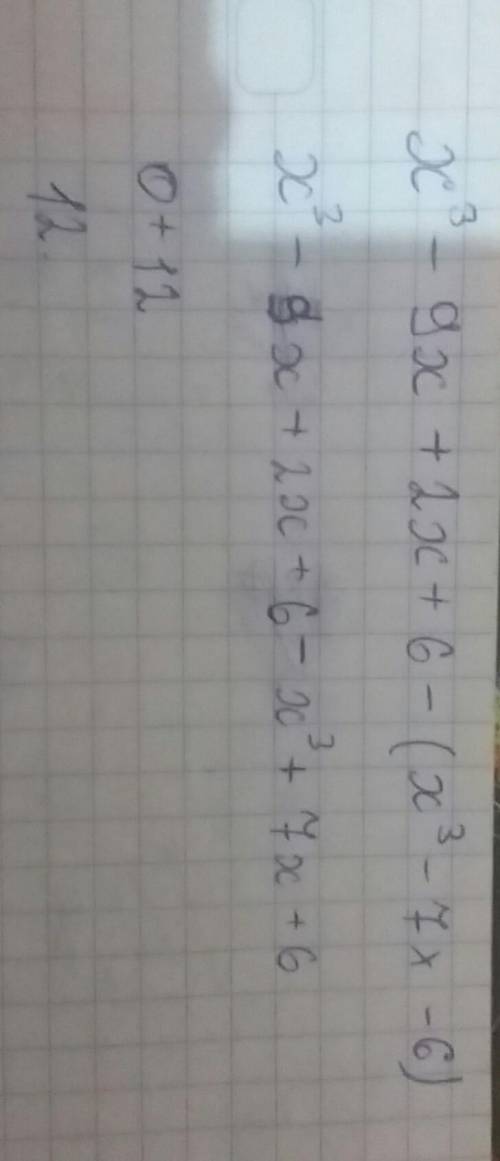 x³ - 9x + 2x + 6 - (x³ - 7x - 6)
x³ - 9x + 2x + 6 - x³ + 7x + 6
0 + 12
12.